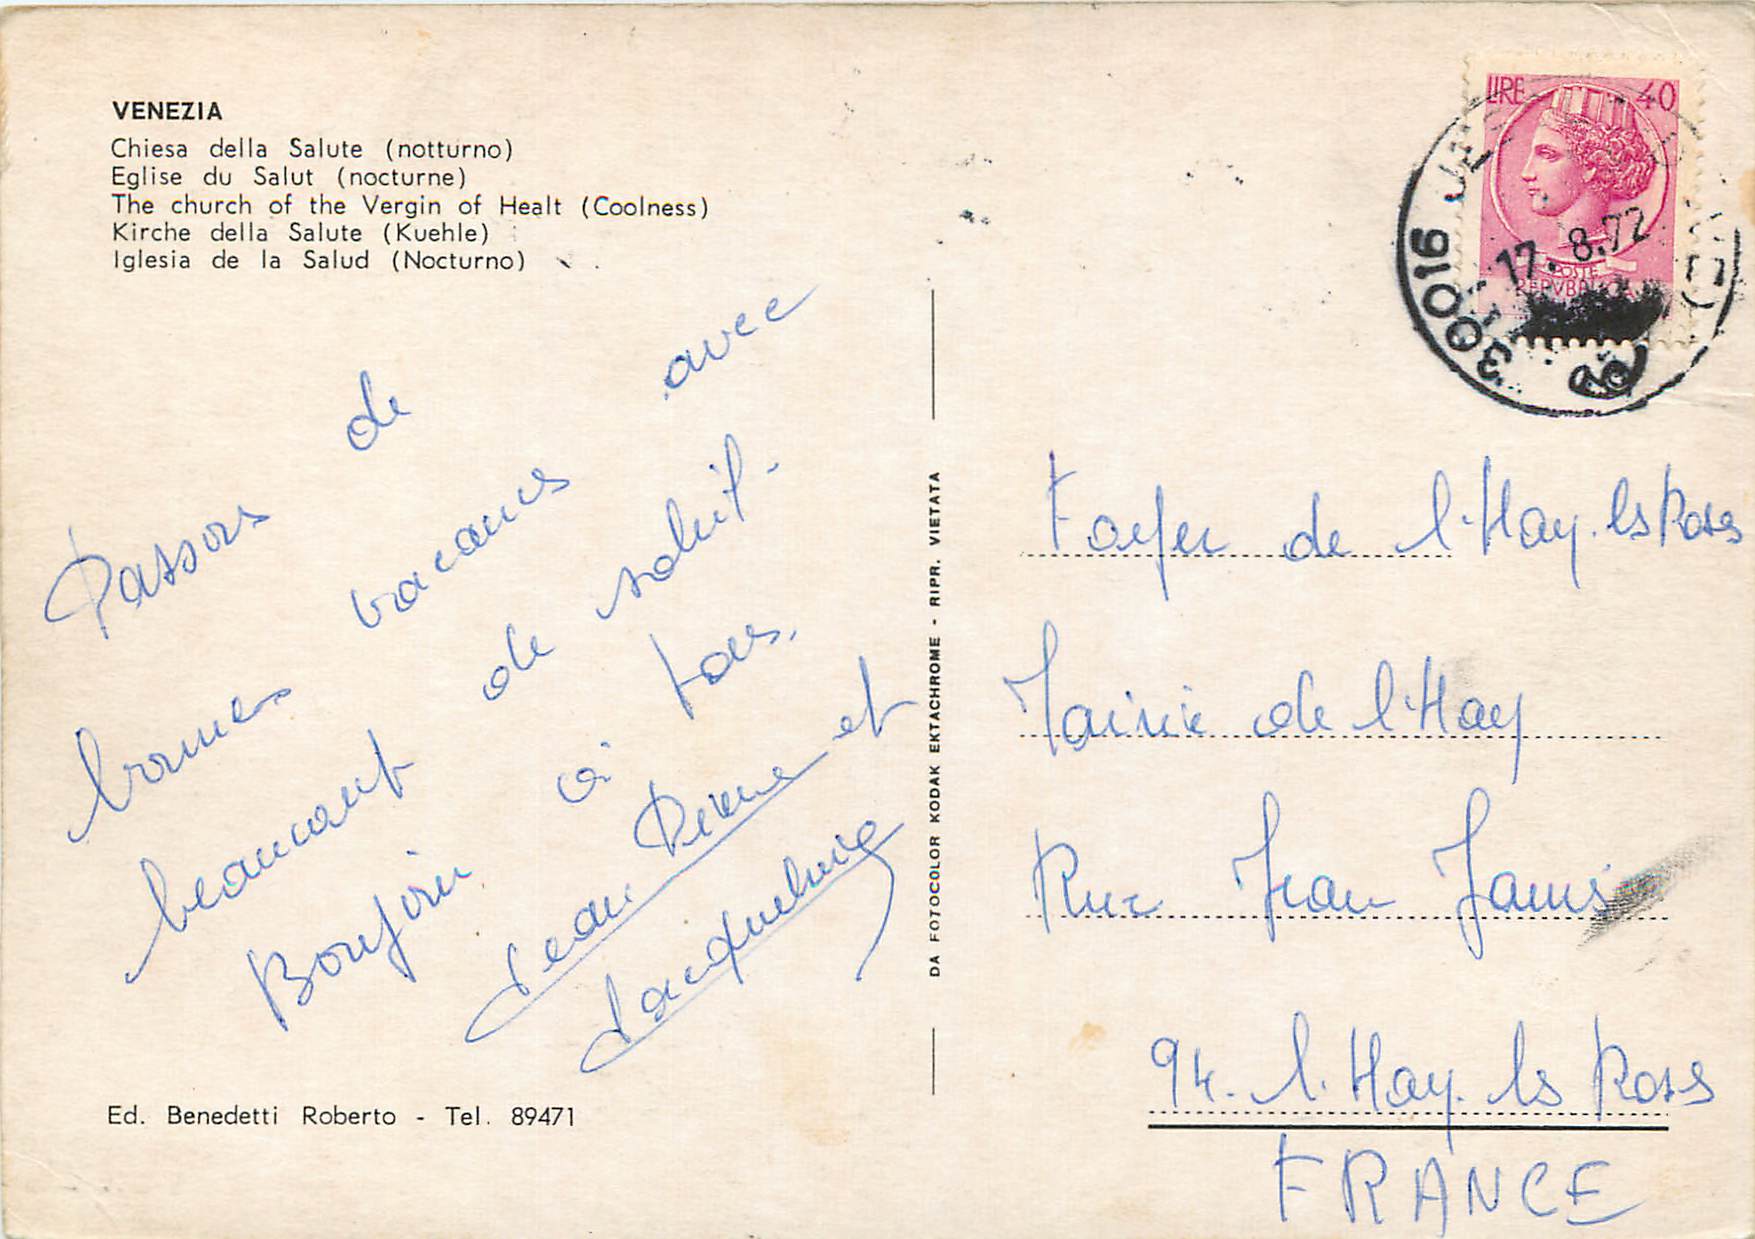 VENEZIA
Chiesa della Salute (notturno)
Eglise du Salut (nocturne)
The church of the Vergin of Healt (Coolness)
Kirche della Salute (Kuehle)
Iglesia de la Salud (Nocturno)
Passons de
bonnes vacances avec
beaucoup de soleil.
Bonjour à tous.
Jean Pierre et
Jacqueline
Ed. Benedetti Roberto - Tel. 89471
DA FOTOCOLOR KODAK EKTACHROME - RIPR. VIETATA
LIRE 40
POSTE
REPVBBLICA
30016 JES
17.8.72
Foyer de l'Hay. les Roses
Mairie de l'Hay
Rue Jean Jaurès
94. l'Hay. les Roses
FRANCE